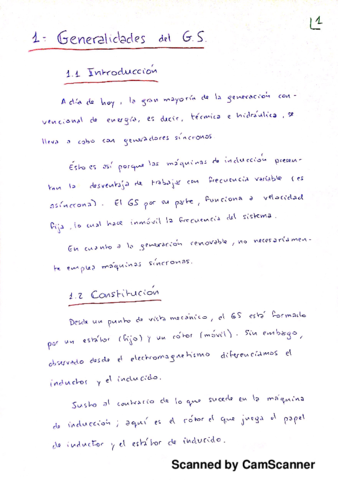 1
1- Generalidades del G.S.
1.1 Introducción
A día de hoy, la gran mayoría de la generación con-
vencional de energía, es decir, térmica e hidráulica, se
lleva a cabo con generadores síncronos
Esto es así porque las máquinas de inducción presen-
tan la desventaja de trabajar con frecuencia variable (es
asíncrona). El GS por su parte, funciona a velocidad
fija, lo cual hace inmóvil la frecuencia del sistema.
En cuanto a la generación renovable, no necesariamen-
te emplea máquinas síncronas.
1.2 Constitución
Desde un punto de vista mecánico, el GS está formado
por un estátor (fijo) y un rótor (móvil). Sin embargo,
observado desde el electromagnetismo diferenciamos el
inductor y el inducido.
Justo al contrario de lo que sucede en la máquina
de inducción; aquí es el rótor el que juega el papel
de inductor y el estátor de inducido.
Scanned by CamScanner